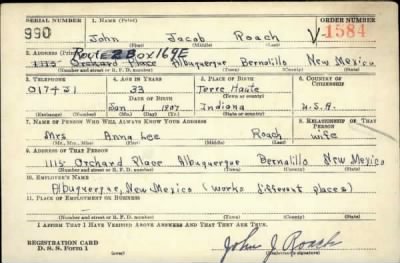 SERIAL NUMBER 1. NAME (Print) ORDER NUMBER
990 John Jacob Roach V 1584
(First) (Middle) (Last)
Route 2 Box 169E
2. ADDRESS (Print)
1115 Orchard Place Albuquerque Bernalillo New Mexico
(Number and street or R. F. D. number) (Town) (County) (State)
3. TELEPHONE 4. AGE IN YEARS 5. PLACE OF BIRTH 6. COUNTRY OF CITIZENSHIP
33 Terre Haute
DATE OF BIRTH (Town or county)
Jan 1907 Indiana U.S.A.
(Exchange) (Number) (Mo.) (Day) (Yr.) (State or country)
7. NAME OF PERSON WHO WILL ALWAYS KNOW YOUR ADDRESS 8. RELATIONSHIP OF THAT PERSON
Mrs Anna Lee Roach wife
(Mr., Mrs., Miss) (First) (Middle) (Last)
9. ADDRESS OF THAT PERSON
1115 Orchard Place Albuquerque Bernalillo New Mexico
(Number and street or R. F. D. number) (Town) (County) (State)
10. EMPLOYER'S NAME
Albuquerque, New Mexico (works different places)
11. PLACE OF EMPLOYMENT OR BUSINESS
(Number and street or R. F. D. number) (Town) (County) (State)
I AFFIRM THAT I HAVE VERIFIED ABOVE ANSWERS AND THAT THEY ARE TRUE.
REGISTRATION CARD
D. S. S. Form 1 John J. Roach